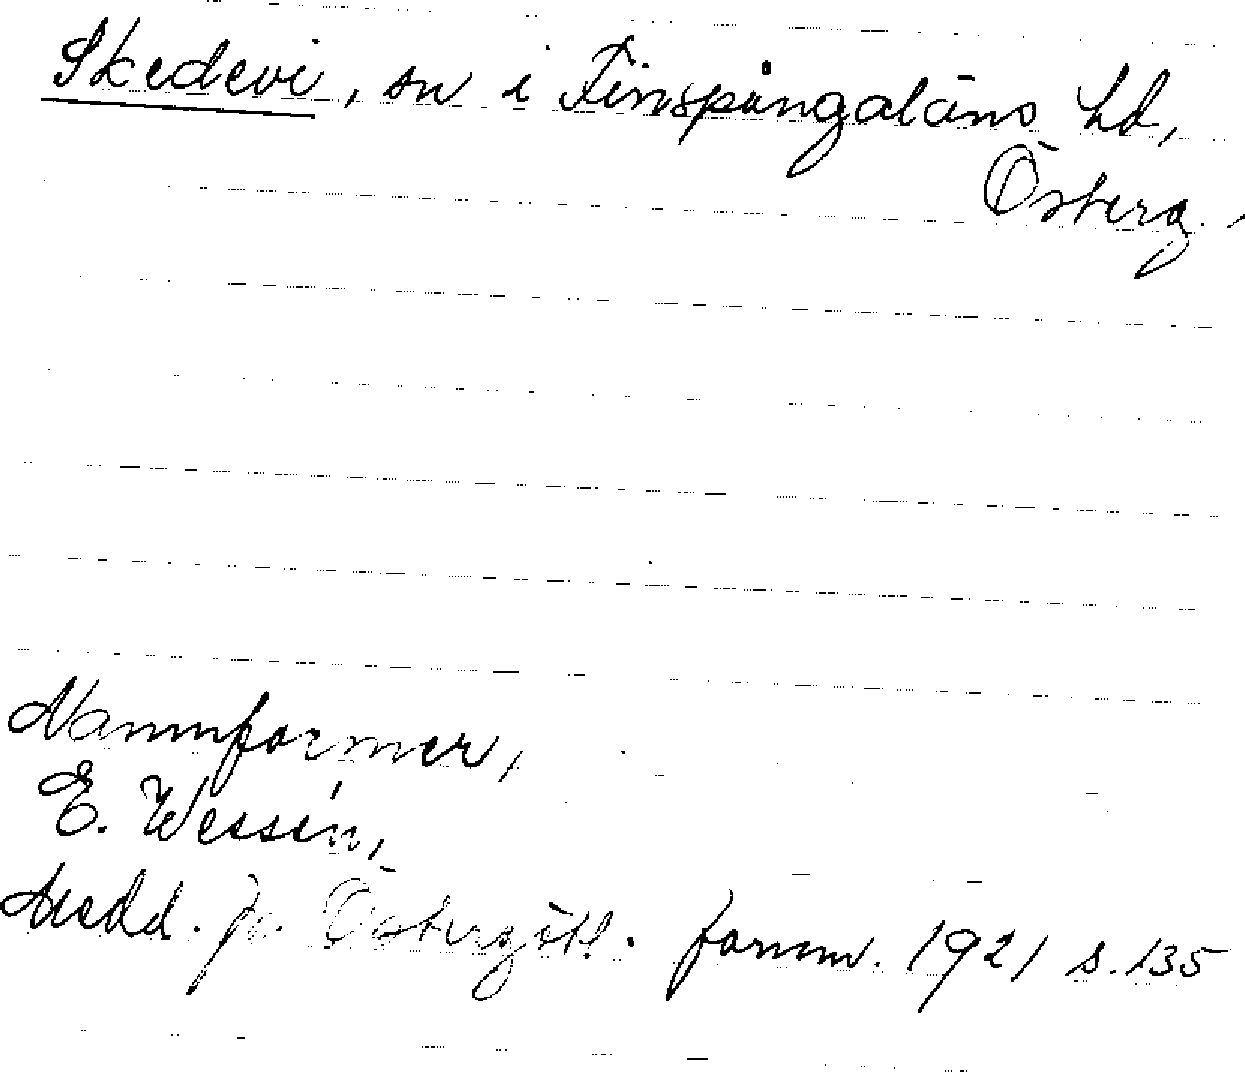 Skedevi, sn i Finspångaläns hd,
Österg.,
Namnformer,
E. Wessén,
Medd. fr. Östergötl. fornm. 1921 s. 135